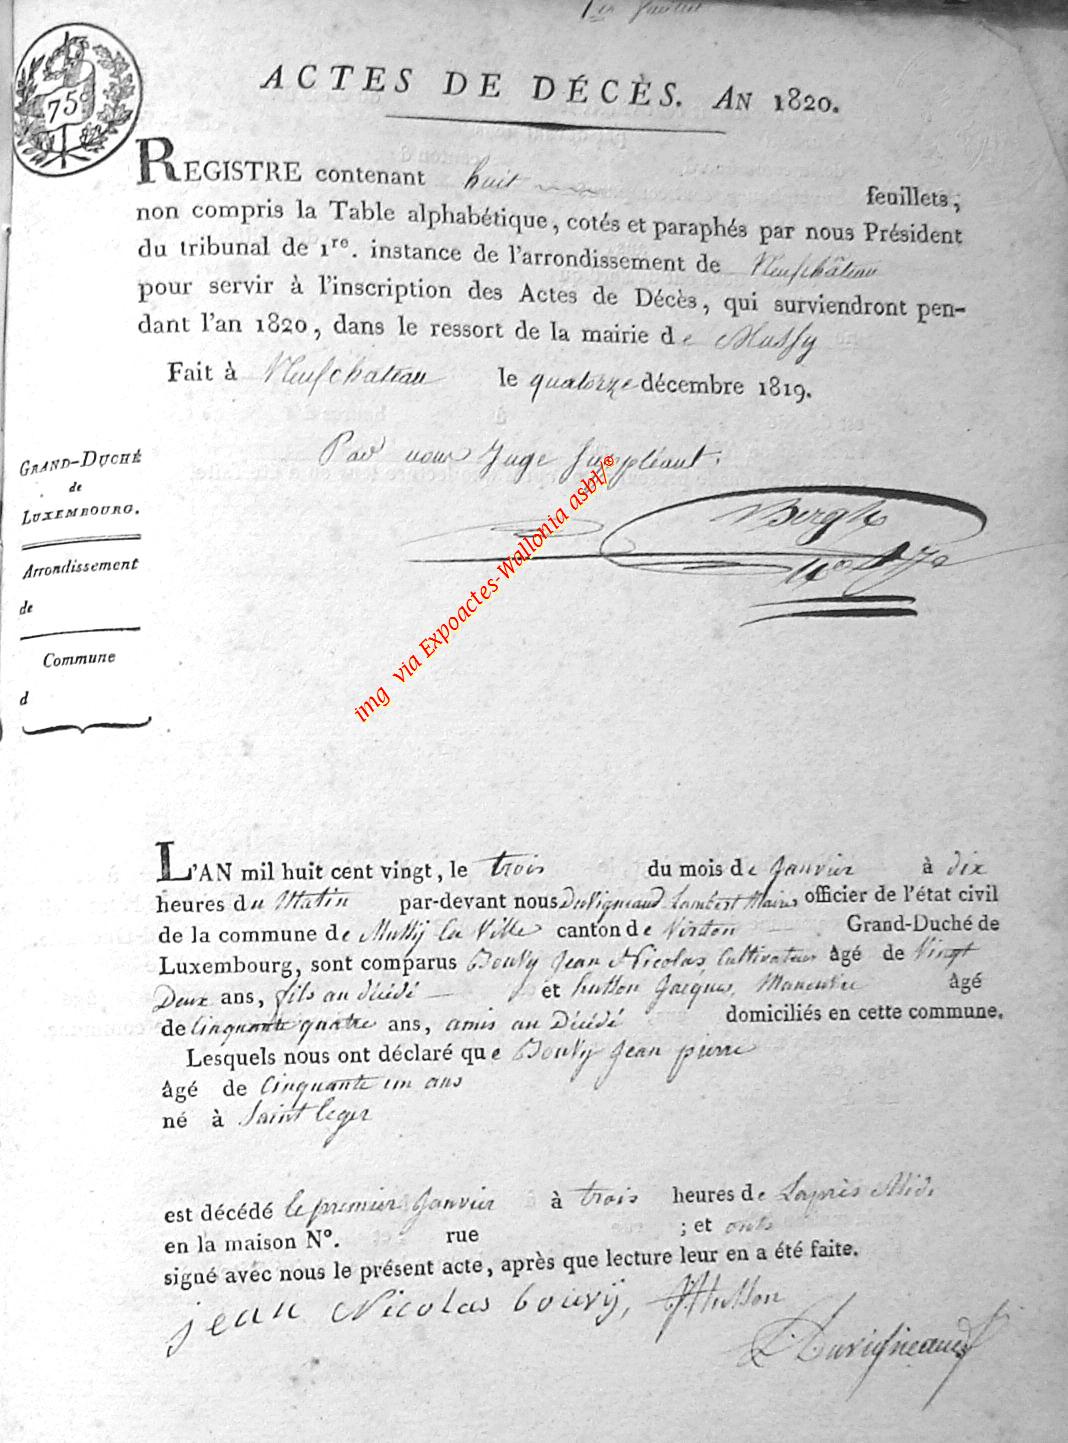 1er feuillet
75
ACTES DE DÉCÈS. AN 1820.
REGISTRE contenant huit feuillets,
non compris la Table alphabétique, cotés et paraphés par nous Président
du tribunal de 1re. instance de l'arrondissement de Neufchâteau
pour servir à l'inscription des Actes de Décès, qui surviendront pen-
dant l'an 1820, dans le ressort de la mairie de Mussy
Fait à Neufchateau le quatorze décembre 1819.
Par nous Juge Suppléant.
GRAND-DUCHÉ
de
LUXEMBOURG.
Arrondissement
de
Commune
d
img via Expoactes-Wallonia asbl/©
L'AN mil huit cent vingt, le trois du mois de Janvier à dix
heures du Matin par-devant nous Duvigneaud Lambert Maire officier de l'état civil
de la commune de Mussy la Ville canton de Virton Grand-Duché de
Luxembourg, sont comparus Bouvy Jean Nicolas Cultivateur âgé de Vingt
Deux ans, fils au décédé et husson Jacques, Manœuvre âgé
de Cinquante quatre ans, amis au Décédé domiciliés en cette commune.
Lesquels nous ont déclaré que Bouvy Jean pierre
âgé de Cinquante un ans
né à Saint leger
est décédé le premier Janvier à trois heures de Laprès Midi
en la maison N°. rue ; et onts
signé avec nous le présent acte, après que lecture leur en a été faite.
jean Nicolas bouvÿ, JHusson
L. Duvigneaud